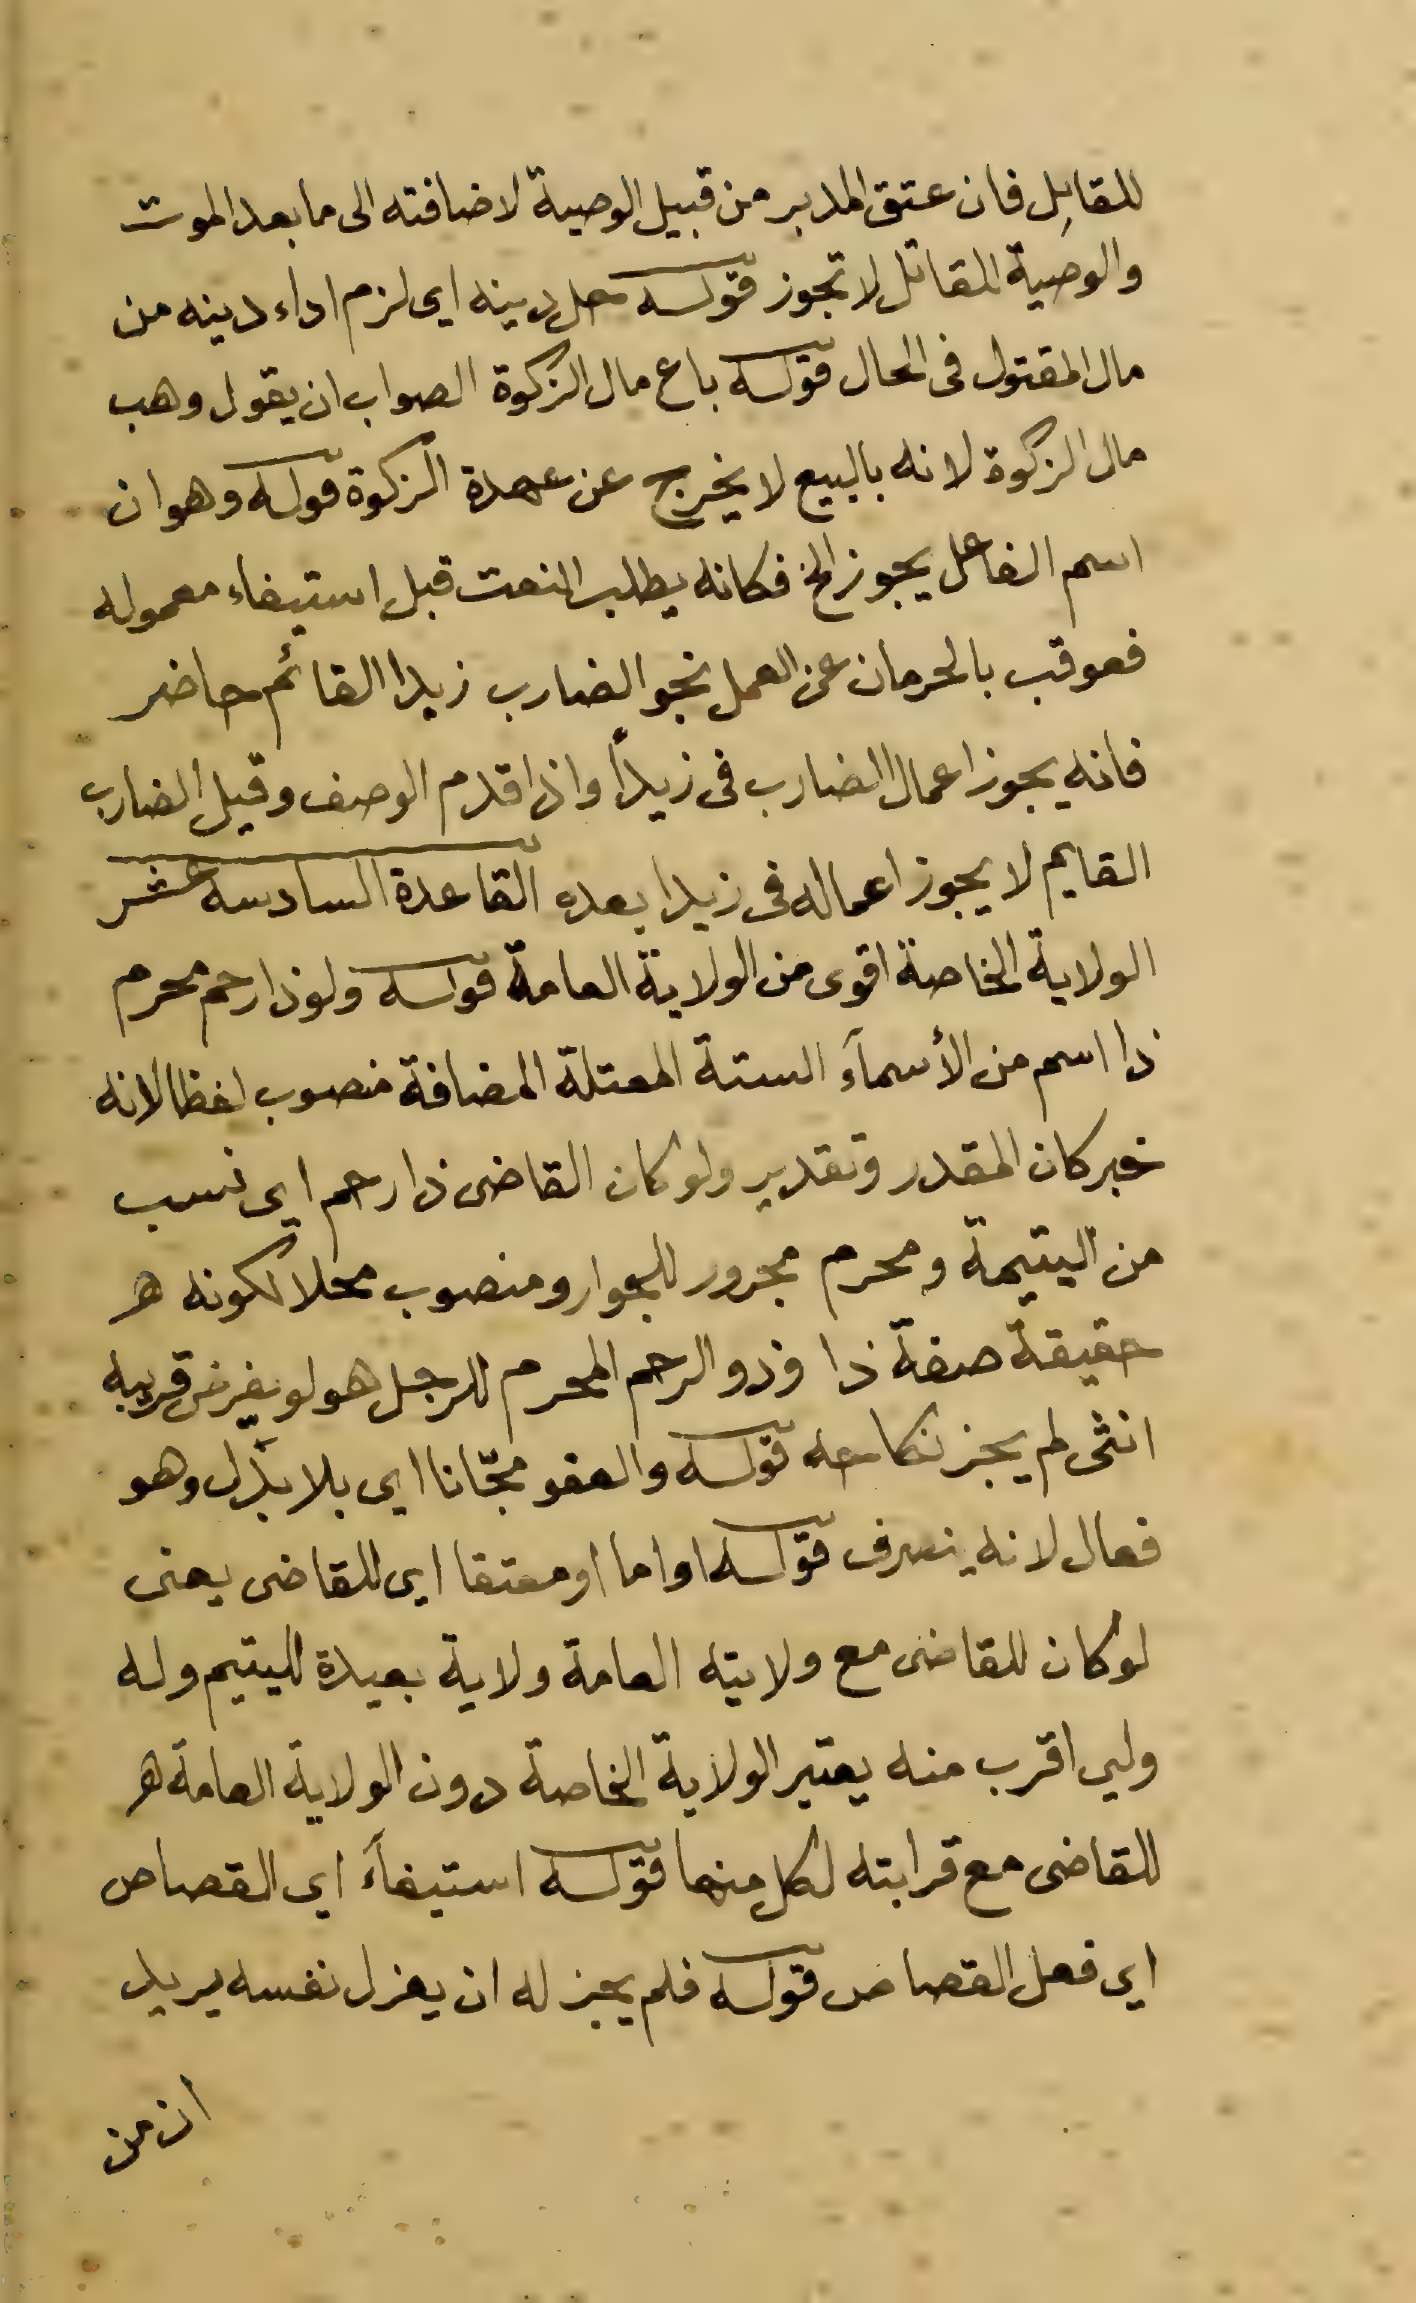 للقاتل فان عتق المدبر من قبيل الوصية لاضافته الى ما بعد الموت
والوصية للقاتل لا تجوز قوله حل دينه اى لزم اداء دينه من
مال المقتول فى الحال قوله باع مال الزكوة الصواب ان يقول وهب
مال الزكوة لانه بالبيع لا يخرج عن عهدة الزكوة قوله وهو ان
اسم الفاعل يجوز الخ فكانه يطلب النعت قبل استيفاء معموله
فعوقب بالحرمان عن العمل نحو الضارب زيدا القائم حاضر
فانه يجوز اعمال الضارب فى زيداً واذا قدم الوصف وقيل الضارب
القايم لا يجوز اعماله فى زيدا بعده القاعدة السادسة عشر
الولاية الخاصة اقوى من الولاية العامة قوله ولو ذا رحم محرم
ذا اسم من الأسمآء الستة المعتلة المضافة منصوب لفظا لانه
خبر كان المقدر وتقدير ولو كان القاضى ذا رحم اى نسب
من اليتيمة ومحرم مجرور للجوار ومنصوب محلا لكونه هر
حقيقة صفة ذا وذو الرحم المحرم للرجل هو لو يفرض قريبه
انثى لم يجز نكاحه قوله والعفو مجّانا اى بلا بدل وهو
فعال لانه ينصرف قوله او اما او معتقا اى للقاضى يعنى
لو كان للقاضى مع ولايته العامة ولاية بعيدة لليتيم وله
ولى اقرب منه يعتبر الولاية الخاصة دون الولاية العامة هر
للقاضى مع قرابته لكل منهما قوله استيفآء اى القصاص
اى فعل القصاص قوله فلم يجز له ان يعزل نفسه يريد
ان من